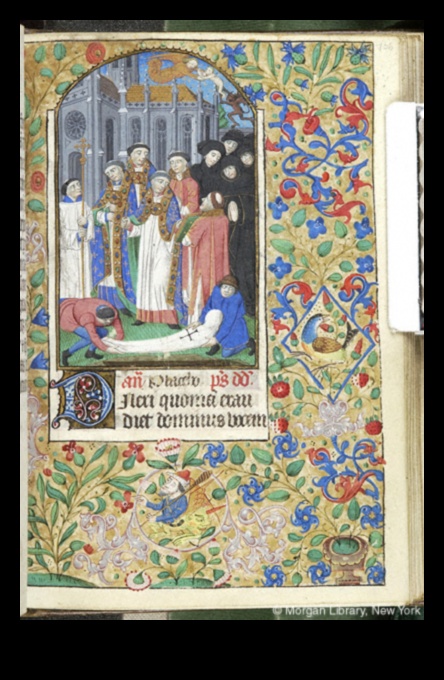 añ Placebo p̄s dd'.
Dilexi quoniā exau
diet dominus vocem
© Morgan Library, New York